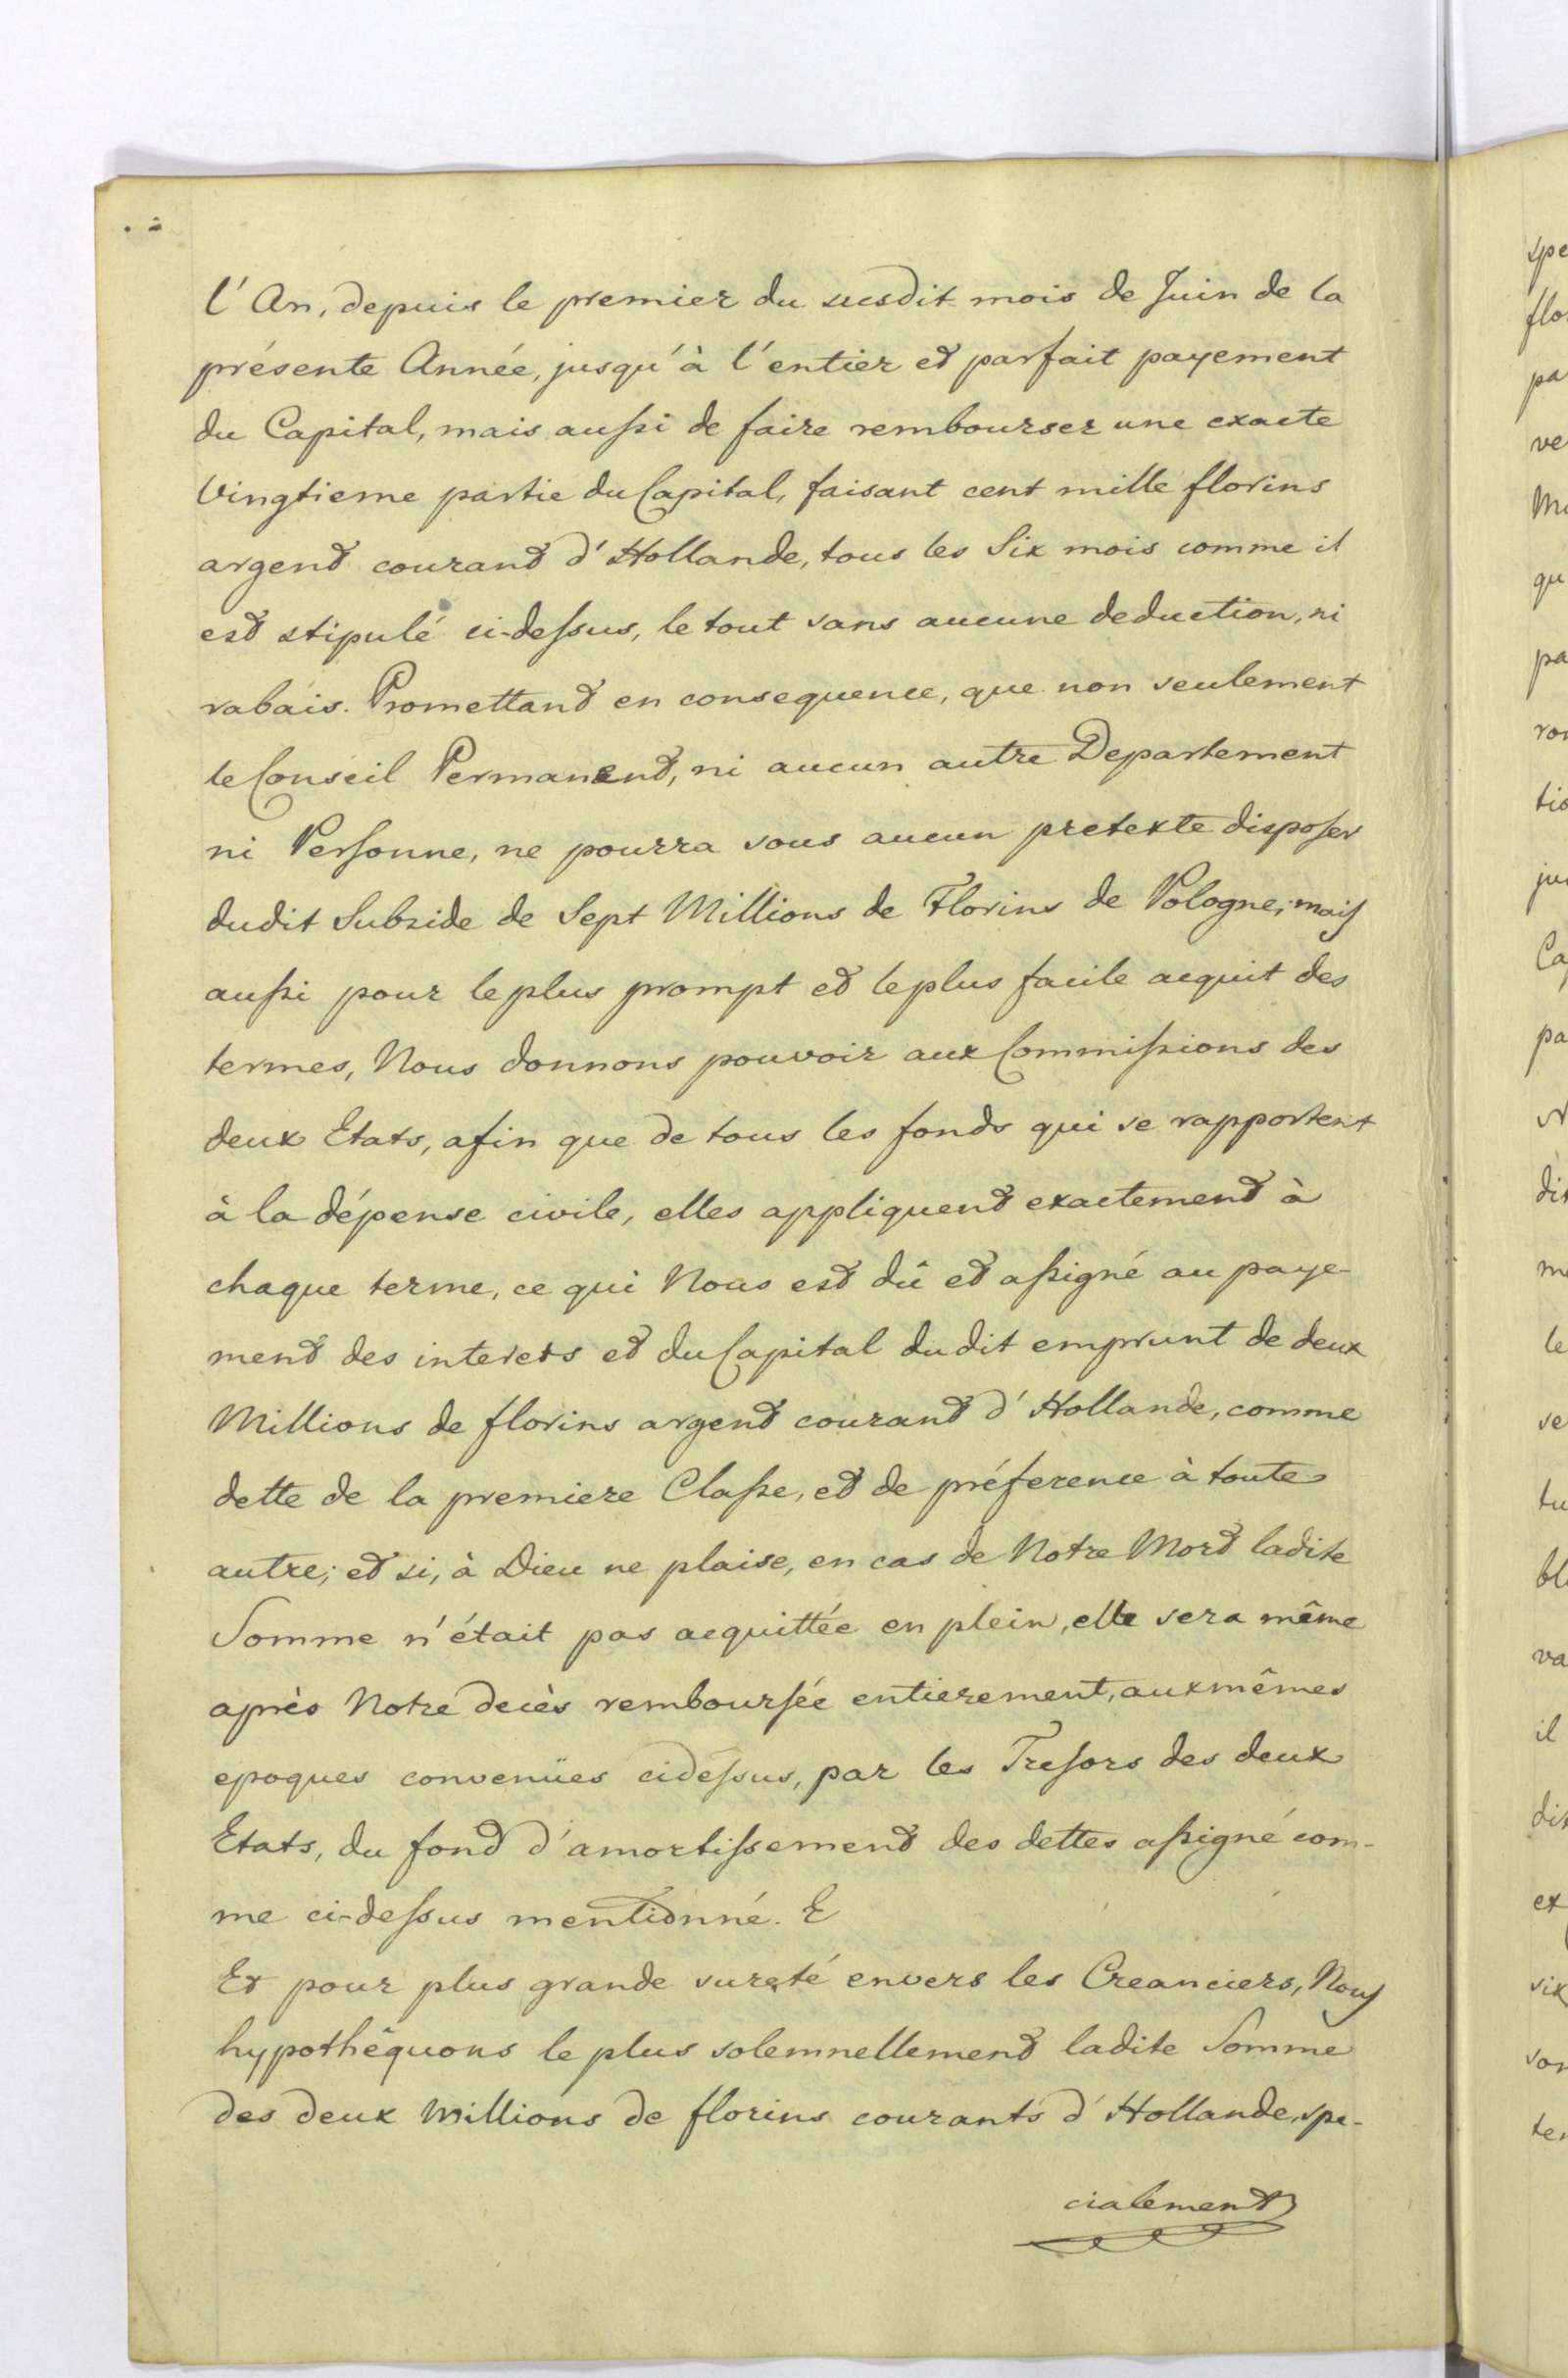 l'An, depuis le premier du susdit mois de Juin de la
présente Année, jusqu'à l'entier et parfait payement
du Capital, mais aussi de faire rembourser une exacte
Vingtieme partie du Capital, faisant cent mille florins
argent courant d'Hollande, tous les Six mois comme il
est stipulé ci-dessus, le tout sans aucune deduction, ni
rabais. Promettant en consequence, que non seulement
le Conseil Permanent, ni aucun autre Departement
ni Personne, ne pourra sous aucun pretexte disposer
dudit Subside de Sept Millions de Florins de Pologne; mais
aussi pour le plus prompt et le plus facile acquit des
termes, Nous donnons pouvoir aux Commissions des
deux Etats, afin que de tous les fonds qui se rapportent
à la dépense civile, elles appliquent exactement à
chaque terme, ce qui Nous est dû et assigné au paye-
ment des interets et du Capital dudit emprunt de deux
Millions de florins argent courant d'Hollande, comme
dette de la premiere Classe, et de préference à toute
autre; et si, à Dieu ne plaise, en cas de Notre Mort ladite
Somme n'était pas acquittée en plein, elle sera même
après Notre decès remboursée entierement, aux mêmes
epoques convenües cidessus, par les Tresors des deux
Etats, du fond d'amortissement des dettes assigné com-
me ci-dessus mentionné. E
Et pour plus grande sureté envers les Creanciers, Nous
hypothêquons le plus solemnellement ladite Somme
des deux Millions de florins courants d'Hollande, spe-
cialement
spe
flo
pa
ve
qu
pa
ror
tio
ju
Ca
pa
dit
me
le
se
tu
bl
va
il
dit
et
six
son
ter